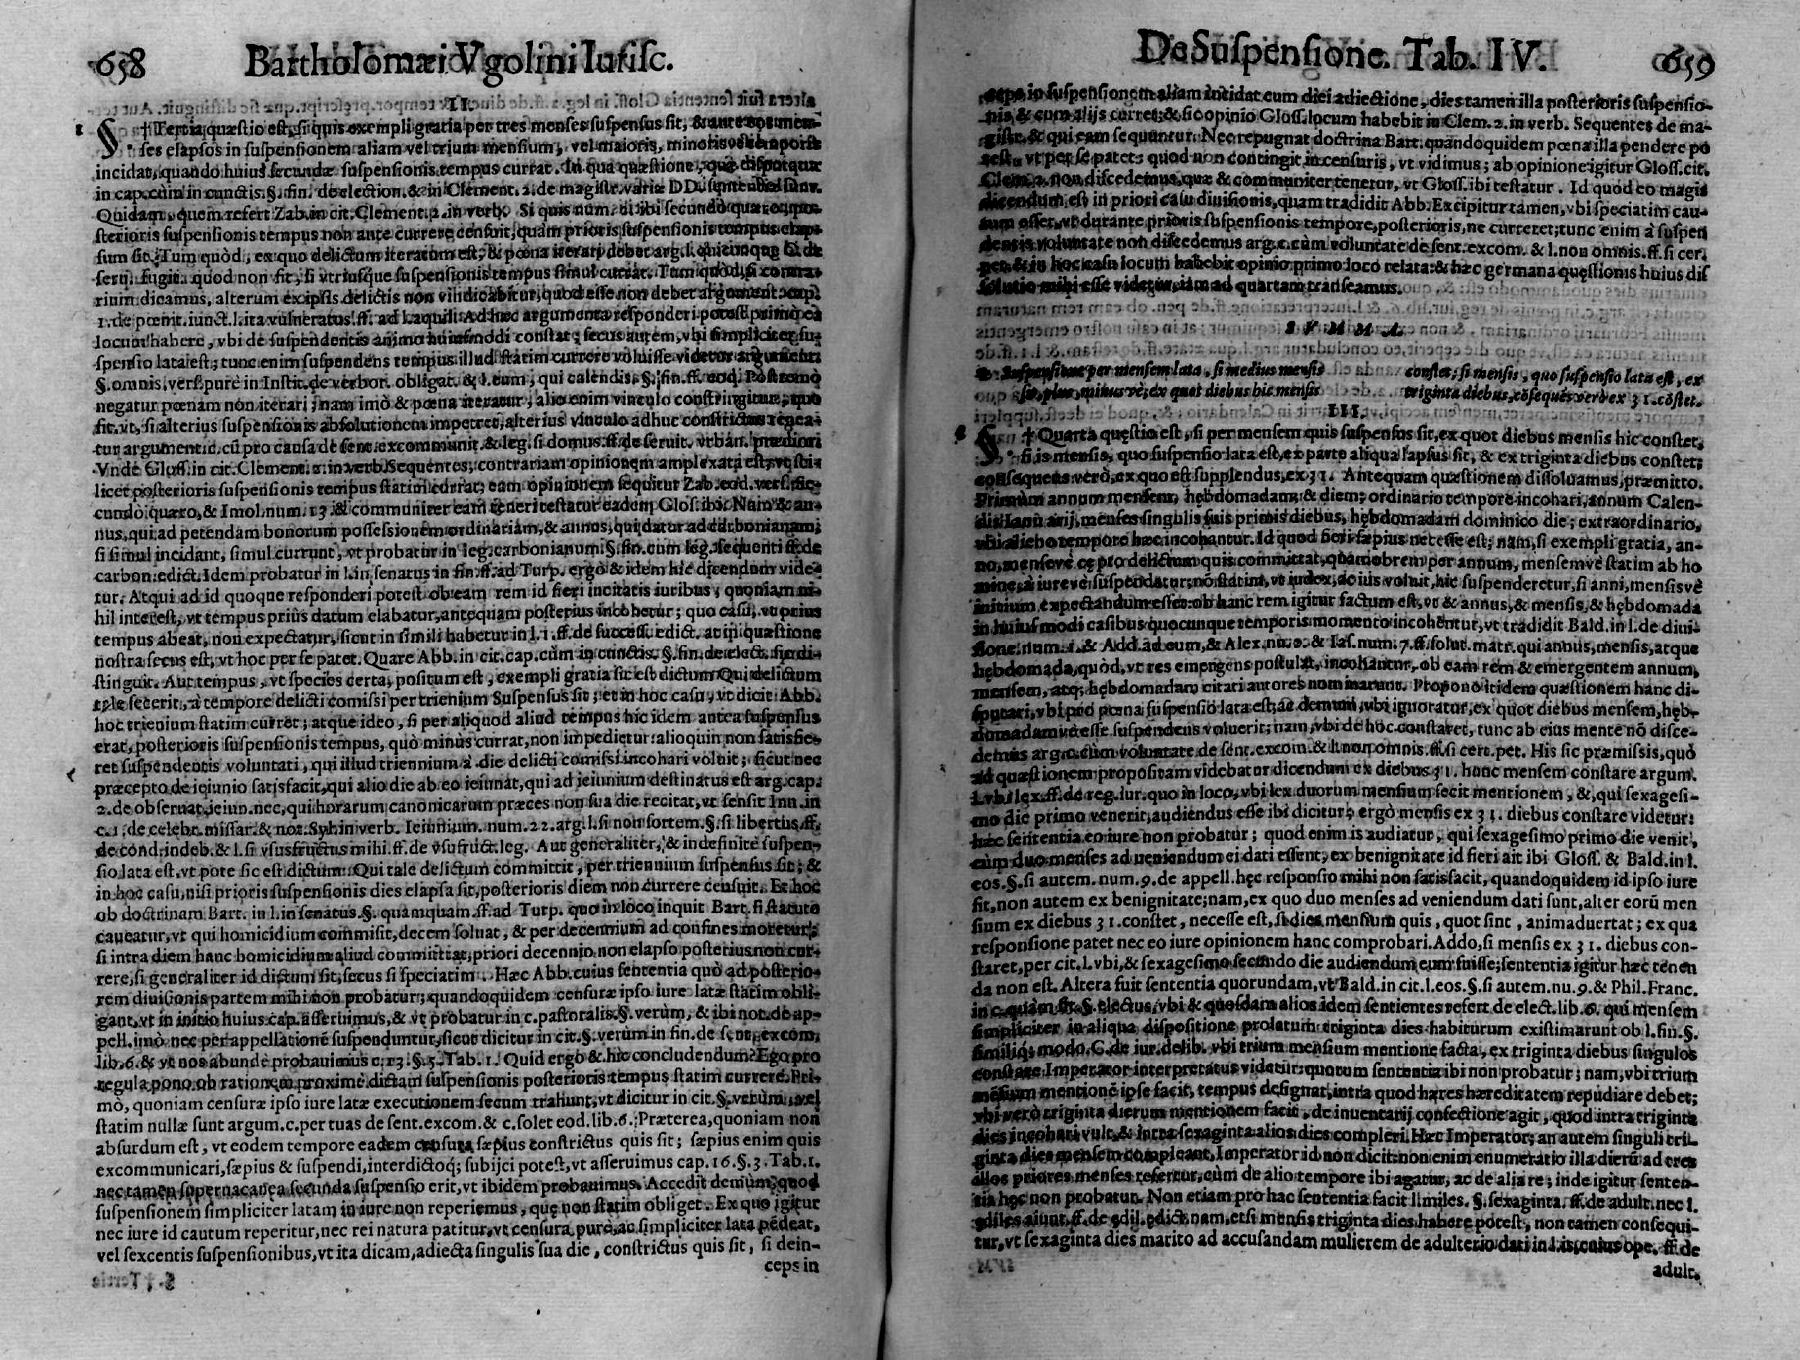 658 Bartholomæi Vgolini Iurisc.
II.
1 §. † Tertia quæstio est, si quis exempli gratia per tres menses suspensus sit, & ante eos men-
ses elapsos in suspensionem aliam vel trium mensium, vel maioris, minorisve temporis
incidat, quando huius secundæ suspensionis tempus currat. In qua quæstione, quæ disputatur
in cap. cùm in cunctis. §. fin. de election. & in Clement. 2. de magistr. variæ DD. sententiæ sunt.
Quidam, quem refert Zab. in cit. Clement. 2. in verb. Si quis num. 2. ibi secundò quæro, po-
sterioris suspensionis tempus non ante currere censuit, quàm prioris suspensionis tempus elap-
sum sit. Tum quòd, ex quo delictum iteratum est, & pœna iterari debet arg. l. quicunque C. de
seru. fugit. quod non fit, si vtriusque suspensionis tempus simul currat. Tum quòd, si contra-
rium dicamus, alterum ex ipsis delictis non vindicabitur, quod esse non debet argument. cap.
1. de pœnit. iunct. l. ita vulneratus. ff. ad l. aquil. Ad hæc argumenta responderi potest primò ea
locum habere, vbi de suspendentis animo huiusmodi constat; secus autem, vbi simpliciter su-
spensio lata est; tunc enim suspendens tempus illud statim currere voluisse videtur argument.
§. omnis. vers. purè in Instit. de verbor. obligat. & l. eum, qui calendis. §. fin. ff. eod. Postremò
negatur pœnam non iterari; nam imò & pœna iteratur; alio enim vinculo constringitur, quo
fit, vt, si alterius suspensionis absolutionem impetret, alterius vinculo adhuc constrictus repea-
tur argument. c. cū pro causa de sent. excommunit. & leg. si domus. ff. de seruit. vrban. prædior.
Vnde Gloss. in cit. Clement. 2. in verb. Sequentes, contrariam opinionem amplexata est, vt sci-
licet posterioris suspensionis tempus statim currat; eam opinionem sequitur Zab. eod. vers. se-
cundò quæro, & Imol. num. 13. & communiter eam teneri testatur eadem Glos. ibi: Nam & an-
nus, qui ad petendam bonorum possessionem ordinariam, & annos, qui datur ad carbonianam;
si simul incidant, simul currunt, vt probatur in leg. carbonianum. §. fin. cum leg. sequenti ff. de
carbon. edict. Idem probatur in l. in senatus in fin. ff. ad Turp. ergò & idem hic dicendum vide-
tur. Atqui ad id quoque responderi potest ob eam rem id fieri in citatis iuribus; quoniam ni-
hil interest, vt tempus priùs datum elabatur, antequam posterius incohetur; quo casu, vt prius
tempus abeat, non expectatur, sicut in simili habetur in l. 1. ff. de success. edict. at in quæstione
nostra secus est, vt hoc per se patet. Quare Abb. in cit. cap. cùm in cunctis. §. fin. de elect. sic di-
stinguit. Aut tempus, vt species certa, positum est, exempli gratia sic est dictum Qui delictum
tale fecerit, à tempore delicti comissi per trienium Suspensus sit; et in hoc casu, vt dicit Abb.
hoc trienium statim curret; atque ideo, si per aliquod aliud tempus hic idem antea suspensus
erat, posterioris suspensionis tempus, quò minùs currat, non impedietur: alioquin non satisfie-
ret suspendentis voluntati, qui illud triennium à die delicti comissi incohari voluit; sicut nec
præcepto de ieiunio satisfacit, qui alio die ab eo ieiunat, qui ad jeiunium destinatus est arg. cap.
2. de obseruat. ieiun. nec, qui horarum canonicarum præces non sua die recitat, vt sensit Inn. in
c. 1. de celebr. missar. & not. Syl. in verb. Ieiunium. num. 22. arg. l. si non fortem. §. si libertus. ff.
de cond. indeb. & l. si vsusfructus mihi. ff. de vsufruct. leg. Aut generaliter, & indefinitè suspen-
sio lata est, vt pote sic est dictum: Qui tale delictum committit, per triennium suspensus sit; &
in hoc casu, nisi prioris suspensionis dies elapsa sit, posterioris diem non currere censuit. Et hoc
ob doctrinam Bart. in l. in senatus. §. quamquam. ff. ad Turp. quo in loco inquit Bart. si statuto
caueatur, vt qui homicidium commisit, decem soluat, & per decennium ad confines moretur;
si intra diem hanc homicidium aliud committat, priori decennio non elapso posterius non cur-
rere, si generaliter id dictum sit; secus si speciatim. Hæc Abb. cuius sententia quò ad posterio-
rem diuisionis partem mihi non probatur; quandoquidem censuræ ipso iure latæ statim obli-
gant, vt in initio huius cap. asseruimus, & vt probatur in c. pastoralis. §. verùm, & ibi not. de ap-
pell. imò nec per appellationē suspenduntur, sicut dicitur in cit. §. verùm in fin. de sent. excom.
lib. 6. & vt nos abundè probauimus c. 13. §. 5. Tab. 1. Quid ergò & hic concludendum? Ego pro
regula pono ob rationem proximè dictam suspensionis posterioris tempus statim currere. Pri-
mò, quoniam censuræ ipso iure latæ executionem secum trahunt, vt dicitur in cit. §. verùm, vel
statim nullæ sunt argum. c. per tuas de sent. excom. & c. solet eod. lib. 6. Præterea, quoniam non
absurdum est, vt eodem tempore eadem censura sæpius constrictus quis sit; sæpius enim quis
excommunicari, sæpius & suspendi, interdictoq; subijci potest, vt asseruimus cap. 16. §. 3. Tab. 1.
nec tamen superuacanea secunda suspensio erit, vt ibidem probauimus. Accedit demùm, quod
suspensionem simpliciter latam in iure non reperiemus, quę non statim obliget. Ex quo igitur
nec iure id cautum reperitur, nec rei natura patitur, vt censura purè, ac simpliciter lata pēdeat,
vel sexcentis suspensionibus, vt ita dicam, adiecta singulis sua die, constrictus quis sit, si dein-
ceps in
De Suspensione. Tab. IV. 659
ceps in suspensionem aliam incidat cum diei adiectione, dies tamen illa posterioris suspensio-
nis, & cum alijs curret; & sic opinio Gloss. locum habebit in Clem. 2. in verb. Sequentes de ma-
gistr. & qui eam sequuntur. Nec repugnat doctrina Bart. quandoquidem pœna illa pendere po
test, vt per se patet: quod non contingit in censuris, vt vidimus; ab opinione igitur Gloss. cit.
Clem. 2. non discedemus, quæ & communiter tenetur, vt Gloss. ibi testatur. Id quod eo magis
dicendum est in priori casu diuisionis, quam tradidit Abb. Excipitur tamen, vbi speciatim cau-
tum esset, vt durante prioris suspensionis tempore, posterioris, ne curreret; tunc enim à suspen
dentis voluntate non discedemus arg. c. cùm voluntate de sent. excom. & l. non omnis. ff. si cer.
pet. & in hoc casu locum habebit opinio primo loco relata: & hæc germana quęstionis huius dis
solutio mihi esse videtur, iam ad quartam transeamus.
SVMMA.
2 Suspensio per mensem lata, si medius mensis
sit, plus, minus vè, ex quot diebus hic mensis
constet; si mensis, quo suspensio lata est, ex
triginta diebus, cōsequēs verò ex 31. cōstet.
III.
2 §. † Quarta quęstio est, si per mensem quis suspensus sit, ex quot diebus mensis hic constet,
si is mensis, quo suspensio lata est, ex parte aliqua lapsus sit, & ex triginta diebus constet;
consequens verò, ex quo est supplendus, ex 31. Antequam quæstionem dissoluamus, præmitto.
Primùm annum mensem, hębdomadam, & diem, ordinario tempore incohari, annum Calen-
dis Ianuarij, menses singulis suis primis diebus, hębdomadam dominico die; extraordinario,
vbi alieno tempore hæc incohantur. Id quod fieri sæpius necesse est; nam, si exempli gratia, an-
no, mensevè cępto delictum quis committat, quamobrem per annum, mensemvè statim ab ho
mine, à iurevè suspendatur, nō statim, vt iudex, ac ius voluit, hic suspenderetur, si anni, mensisvè
initium expectandum esset: ob hanc rem igitur factum est, vt & annus, & mensis, & hębdomada
in huiusmodi casibus quocunque temporis momento incohentur, vt tradidit Bald. in l. de diui-
sione. num. 1. & Add. ad eum, & Alex. nu. 9. & Ias. num. 7. ff. solut. matr. qui annus, mensis, atque
hębdomada, quòd, vt res emergens postulat, incohantur, ob eam rem & emergentem annum,
mensem, atq; hębdomadam citati autores nominarunt. Propono itidem quæstionem hanc di-
sputari, vbi pro pœna suspensio lata est; ac demum, vbi ignoratur, ex quot diebus mensem, hęb-
domadam vè esse suspendens voluerit; nam, vbi de hoc constaret, tunc ab eius mente nō disce-
demus arg. c. cùm voluntate de sent. excom. & l. non omnis. ff. si cert. pet. His sic præmissis, quò
ad quæstionem propositam videbatur dicendum ex diebus 31. hunc mensem constare argum.
l. vbi lex. ff. de reg. iur. quo in loco, vbi lex duorum mensium fecit mentionem, &, qui sexagesi-
mo die primo venerit, audiendus esse ibi dicitur; ergò mensis ex 31. diebus constare videtur:
hæc sententia eo iure non probatur; quod enim is audiatur, qui sexagesimo primo die venit,
cùm duo menses ad ueniendum ei dati essent, ex benignitate id fieri ait ibi Gloss. & Bald. in l.
eos. §. si autem. num. 9. de appell. hęc responsio mihi non satisfacit, quandoquidem id ipso iure
fit, non autem ex benignitate; nam, ex quo duo menses ad veniendum dati sunt, alter eorū men
sium ex diebus 31. constet, necesse est, si dies mensium quis, quot sint, animaduertat; ex qua
responsione patet nec eo iure opinionem hanc comprobari. Addo, si mensis ex 31. diebus con-
staret, per cit. l. vbi, & sexagesimo secundo die audiendum eum fuisse; sententia igitur hæc tenen
da non est. Altera fuit sententia quorundam, vt Bald. in cit. l. eos. §. si autem. nu. 9. & Phil. Franc.
in c. quàm sit. §. electus, vbi & quosdam alios idem sentientes refert de elect. lib. 6. qui mensem
simpliciter in aliqua dispositione prolatum triginta dies habiturum existimarunt ob l. fin. §.
similiq; modo. C. de iur. delib. vbi trium mensium mentione facta, ex triginta diebus singulos
constare Imperator interpretatus videtur: quorum sententia ibi non probatur; nam, vbi trium
mēsium mentionē ipse facit, tempus designat, intra quod hæres hæreditatem repudiare debet;
vbi verò triginta dierum mentionem facit, de inuentarij confectione agit, quod intra triginta
dies incohari vult, & intra sexaginta alios dies compleri. Hæc Imperator; an autem singuli tri-
ginta dies mensem compleant, Imperator id non dicit: non enim enumeratio illa dierū ad tres
illos priores menses refertur, cùm de alio tempore ibi agatur, ac de alia re; inde igitur senten-
tia hęc non probatur. Non etiam pro hac sententia facit l. miles. §. sexaginta. ff. de adult. nec l.
ędiles aiunt. ff. de ędil. ędict. nam, etsi mensis triginta dies habere potest, non tamen consequi-
tur, vt sexaginta dies marito ad accusandam mulierem de adulterio dati in l. is, cuius ope. ff. de
adult.